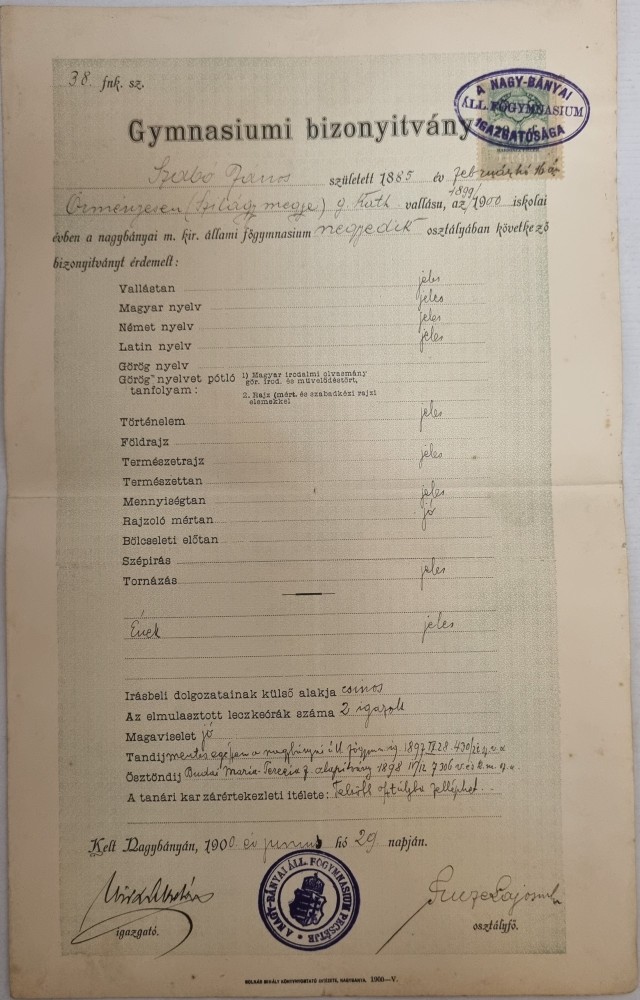 38. fnk. sz.
A NAGY-BÁNYAI
ÁLL. FŐGYMNASIUM
IGAZGATÓSÁGA
Gymnasiumi bizonyitvány
Szabó János született 1885 év februárhó 16 án
Örményesen (Szilágy megye) g. Kath. vallásu, az 1899/1900 iskolai
évben a nagybányai m. kir. állami főgymnasium negyedik osztályában következő
bizonyitványt érdemelt:
Vallástan jeles
Magyar nyelv jeles
Német nyelv jeles
Latin nyelv jeles
Görög nyelv
Görög nyelvet pótló tanfolyam: 1) Magyar irodalmi olvasmány
gör. irod. és művelődéstört.
2. Rajz (mért. és szabadkézi rajzi
elemekkel
Történelem jeles
Földrajz
Természetrajz jeles
Természettan
Mennyiségtan jeles
Rajzoló mértan jó
Bölcseleti előtan
Szépirás
Tornázás jeles
Ének jeles
Irásbeli dolgozatainak külső alakja csinos
Az elmulasztott leczkeórák száma 2 igazolt
Magaviselet jó
Tandij mentes a nagybányai áll. főgymn. ig. 1897
Ösztöndij Budai Mária-Terézia alapitvány 1898
A tanári kar zárértekezleti itélete: Felsőbb osztályba felléphet.
Kelt Nagybányán, 1900 évi junius hó 29 napján.
igazgató.
A NAGY-BÁNYAI ÁLL. FŐGYMNASIUM PECSÉTJE
osztályfő.
MOLNÁR MIHÁLY KÖNYVNYOMTATÓ INTÉZETE, NAGYBÁNYA. 1900—V.